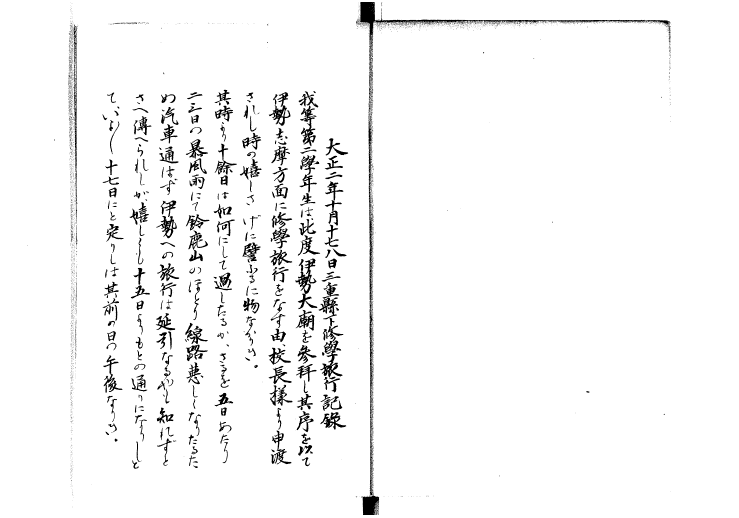 大正二年十月十七八日三重縣下修學旅行記錄
我等第二學年生は此度伊勢大廟を參拜し其序を以て
伊勢志摩方面に修學旅行をなす由、校長樣より申渡
されし時の嬉しさ げに譬ふるに物なかりき。
其時より十餘日は如何にして過したるか、さるを五日あたり
二三日の暴風雨にて鈴鹿山のほとり線路惡しくなりたるた
め汽車通はず伊勢への旅行は延引なるやも知れずと
さへ傳へられしが、嬉しくも十五日よりもとの通りになりしと
て、いよ〳〵十七日にと定りしは其前の日の午後なりき。